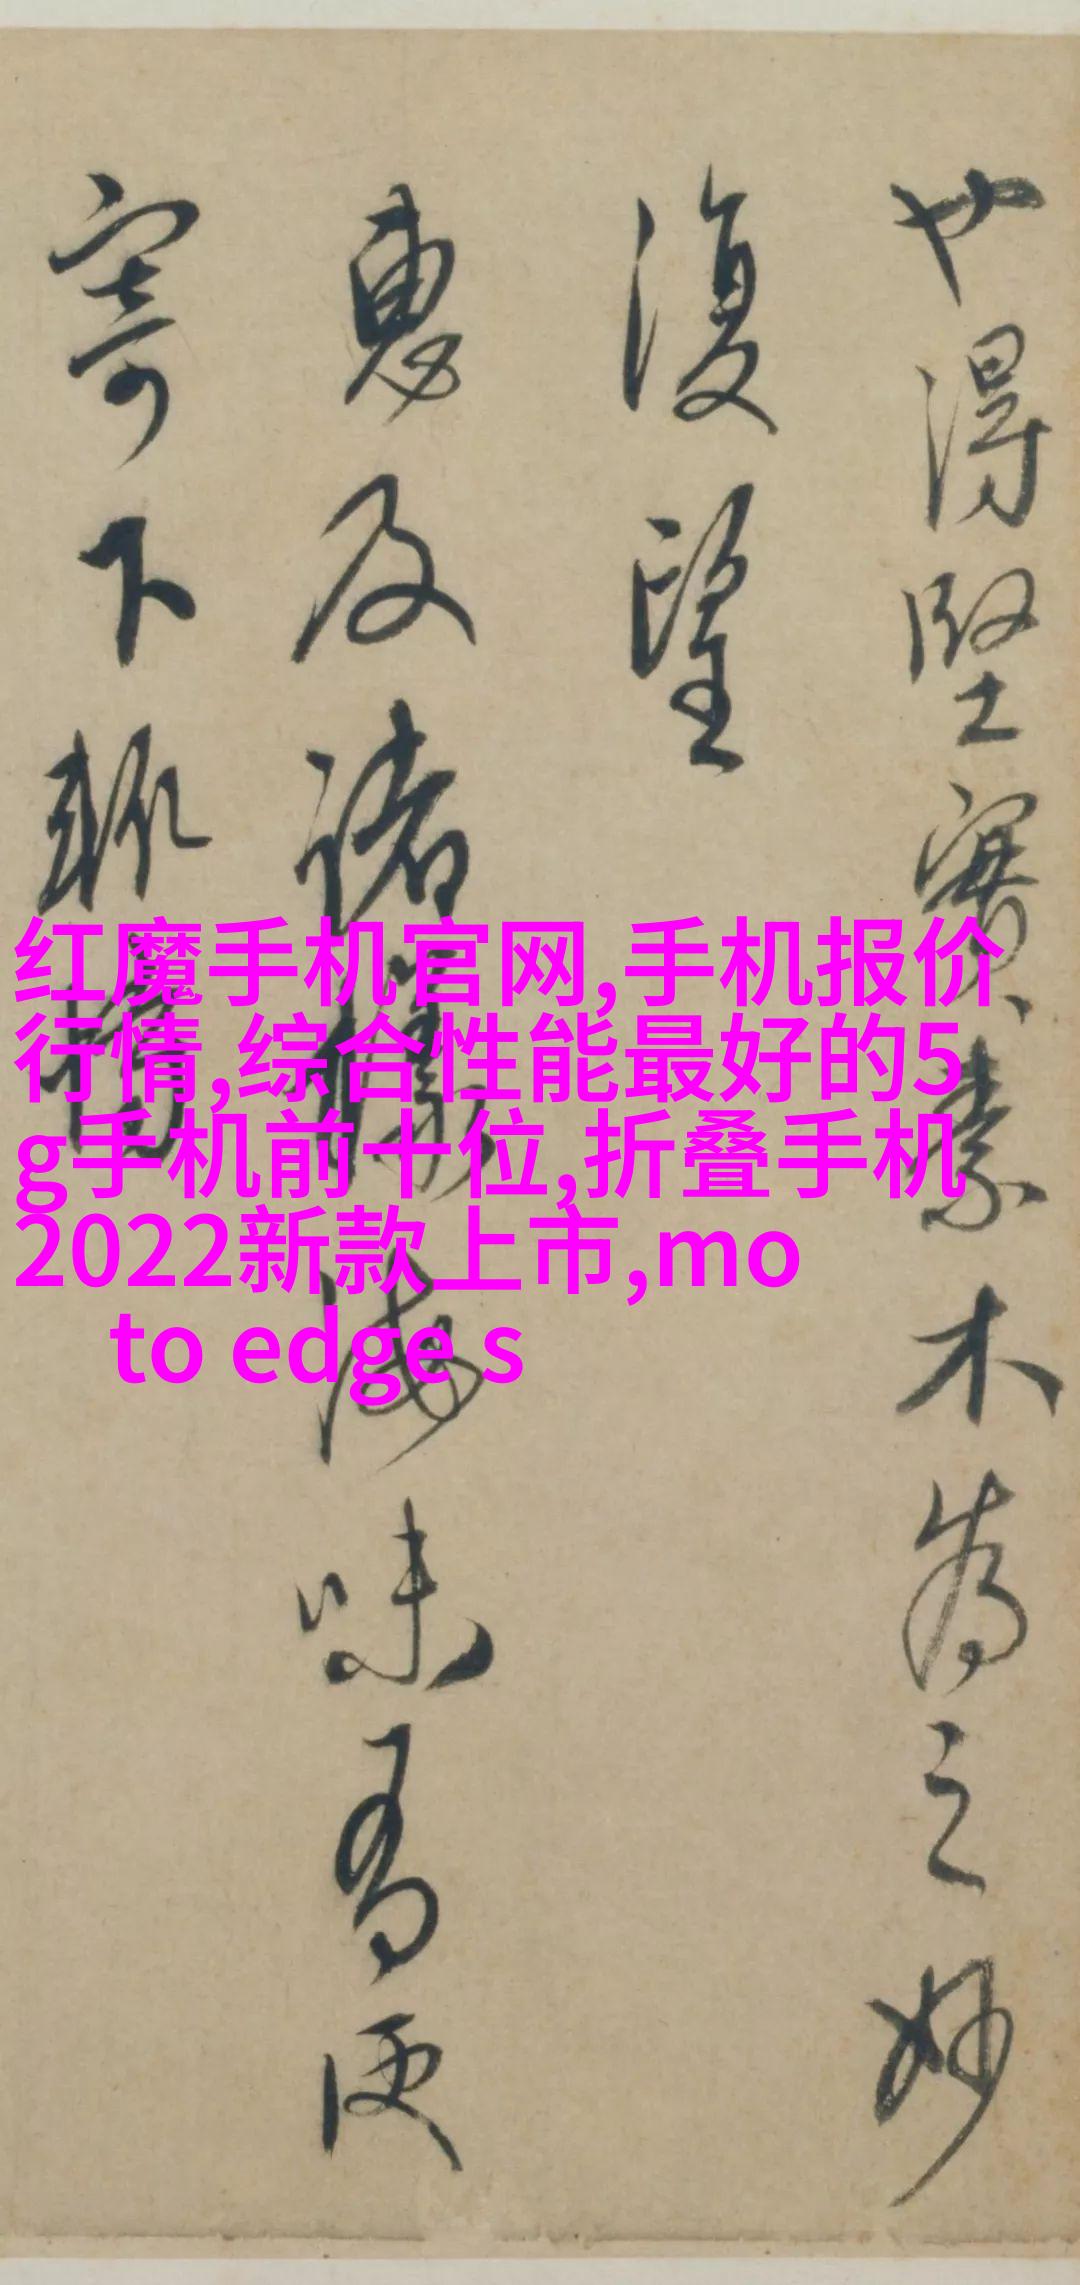 红魔手机官网,手机报价
行情,综合性能最好的5
g手机前十位,折叠手机
2022新款上市,mo
to edge s
也得堅實素木為之妙
復望
惠及諸海味有便
寄下輒